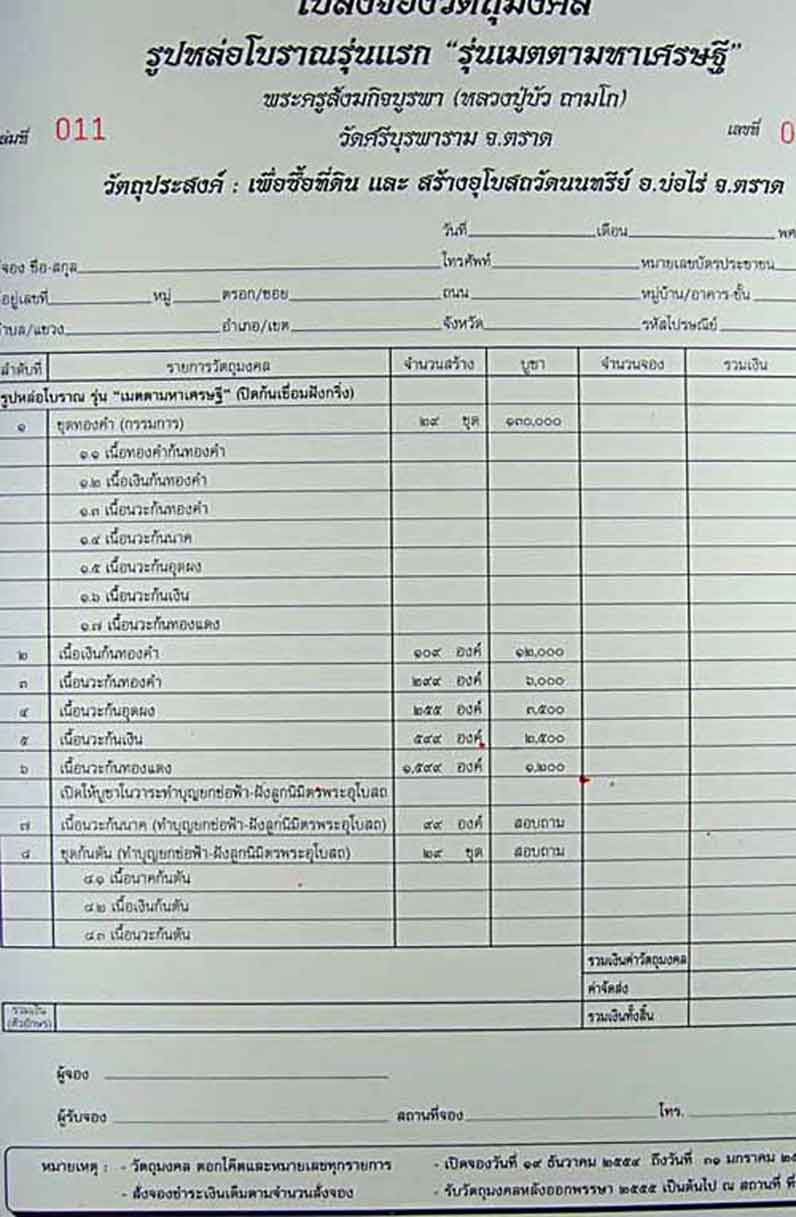 ใบสั่งจองวัตถุมงคล
รูปหล่อโบราณรุ่นแรก "รุ่นเมตตามหาเศรษฐี"
พระครูสังฆกิจบูรพา (หลวงปู่บัว ถามโก)
ล่มที่ 011 วัดศรีบุรพาราม จ.ตราด เลขที่ 0
วัตถุประสงค์ : เพื่อซื้อที่ดิน และ สร้างอุโบสถวัดนนทรีย์ อ.บ่อไร่ จ.ตราด
วันที่ เดือน พศ
จอง ชื่อ-สกุล โทรศัพท์ หมายเลขบัตรประชาชน
อยู่เลขที่ หมู่ ตรอก/ซอย ถนน หมู่บ้าน/อาคาร-ชั้น
ำบล/แขวง อำเภอ/เขต จังหวัด รหัสไปรษณีย์
ลำดับที่ รายการวัตถุมงคล จำนวนสร้าง บูชา จำนวนจอง รวมเงิน
รูปหล่อโบราณ รุ่น "เมตตามหาเศรษฐี" (ปิดก้นเชื่อมฝังกริ่ง)
๑ ชุดทองคำ (กรรมการ) ๒๙ ชุด ๑๓๐,๐๐๐
๑.๑ เนื้อทองคำก้นทองคำ
๑.๒ เนื้อเงินก้นทองคำ
๑.๓ เนื้อนวะก้นทองคำ
๑.๔ เนื้อนวะก้นนาค
๑.๕ เนื้อนวะก้นอุดผง
๑.๖ เนื้อนวะก้นเงิน
๑.๗ เนื้อนวะก้นทองแดง
๒ เนื้อเงินก้นทองคำ ๑๐๙ องค์ ๑๒,๐๐๐
๓ เนื้อนวะก้นทองคำ ๒๙๙ องค์ ๖,๐๐๐
๔ เนื้อนวะก้นอุดผง ๒๕๕ องค์ ๓,๕๐๐
๕ เนื้อนวะก้นเงิน ๕๙๙ องค์ ๒,๕๐๐
๖ เนื้อนวะก้นทองแดง ๑,๕๙๙ องค์ ๑,๒๐๐
เปิดให้บูชาในวาระทำบุญยกช่อฟ้า-ฝังลูกนิมิตรพระอุโบสถ
๗ เนื้อนวะก้นนาค (ทำบุญยกช่อฟ้า-ฝังลูกนิมิตรพระอุโบสถ) ๙๙ องค์ สอบถาม
๘ ชุดก้นตัน (ทำบุญยกช่อฟ้า-ฝังลูกนิมิตรพระอุโบสถ) ๒๙ ชุด สอบถาม
๘.๑ เนื้อนาคก้นตัน
๘.๒ เนื้อเงินก้นตัน
๘.๓ เนื้อนวะก้นตัน
รวมเงินค่าวัตถุมงคล
ค่าจัดส่ง
รวมเงิน
(ตัวอักษร) รวมเงินทั้งสิ้น
ผู้จอง
ผู้รับจอง สถานที่จอง โทร.
หมายเหตุ : - วัตถุมงคล ตอกโค๊ตและหมายเลขทุกรายการ - เปิดจองวันที่ ๑๙ ธันวาคม ๒๕๕๔ ถึงวันที่ ๓๑ มกราคม ๒๕
- สั่งจองชำระเงินเต็มตามจำนวนสั่งจอง - รับวัตถุมงคลหลังออกพรรษา ๒๕๕๕ เป็นต้นไป ณ สถานที่ ที่